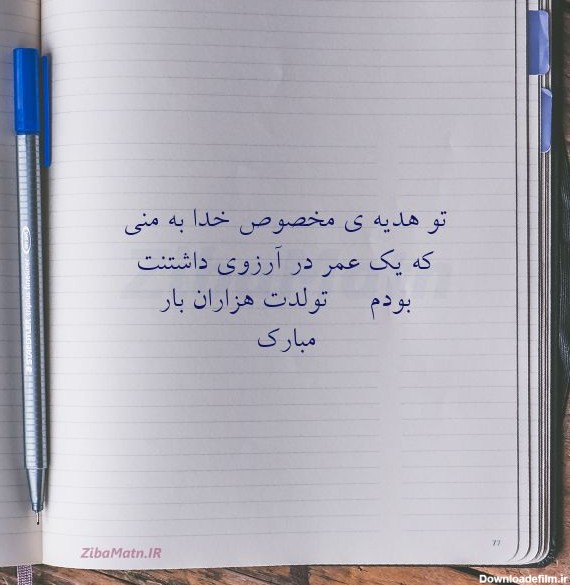 تو هدیه ی مخصوص خدا به منی
که یک عمر در آرزوی داشتنت
بودم تولدت هزاران بار
مبارک
ZibaMatn.IR
77
Downloadefilm.ir